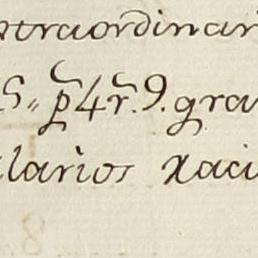 xtraordinari
S,, p̃ 4 r̃. 9. gra
larios xaci